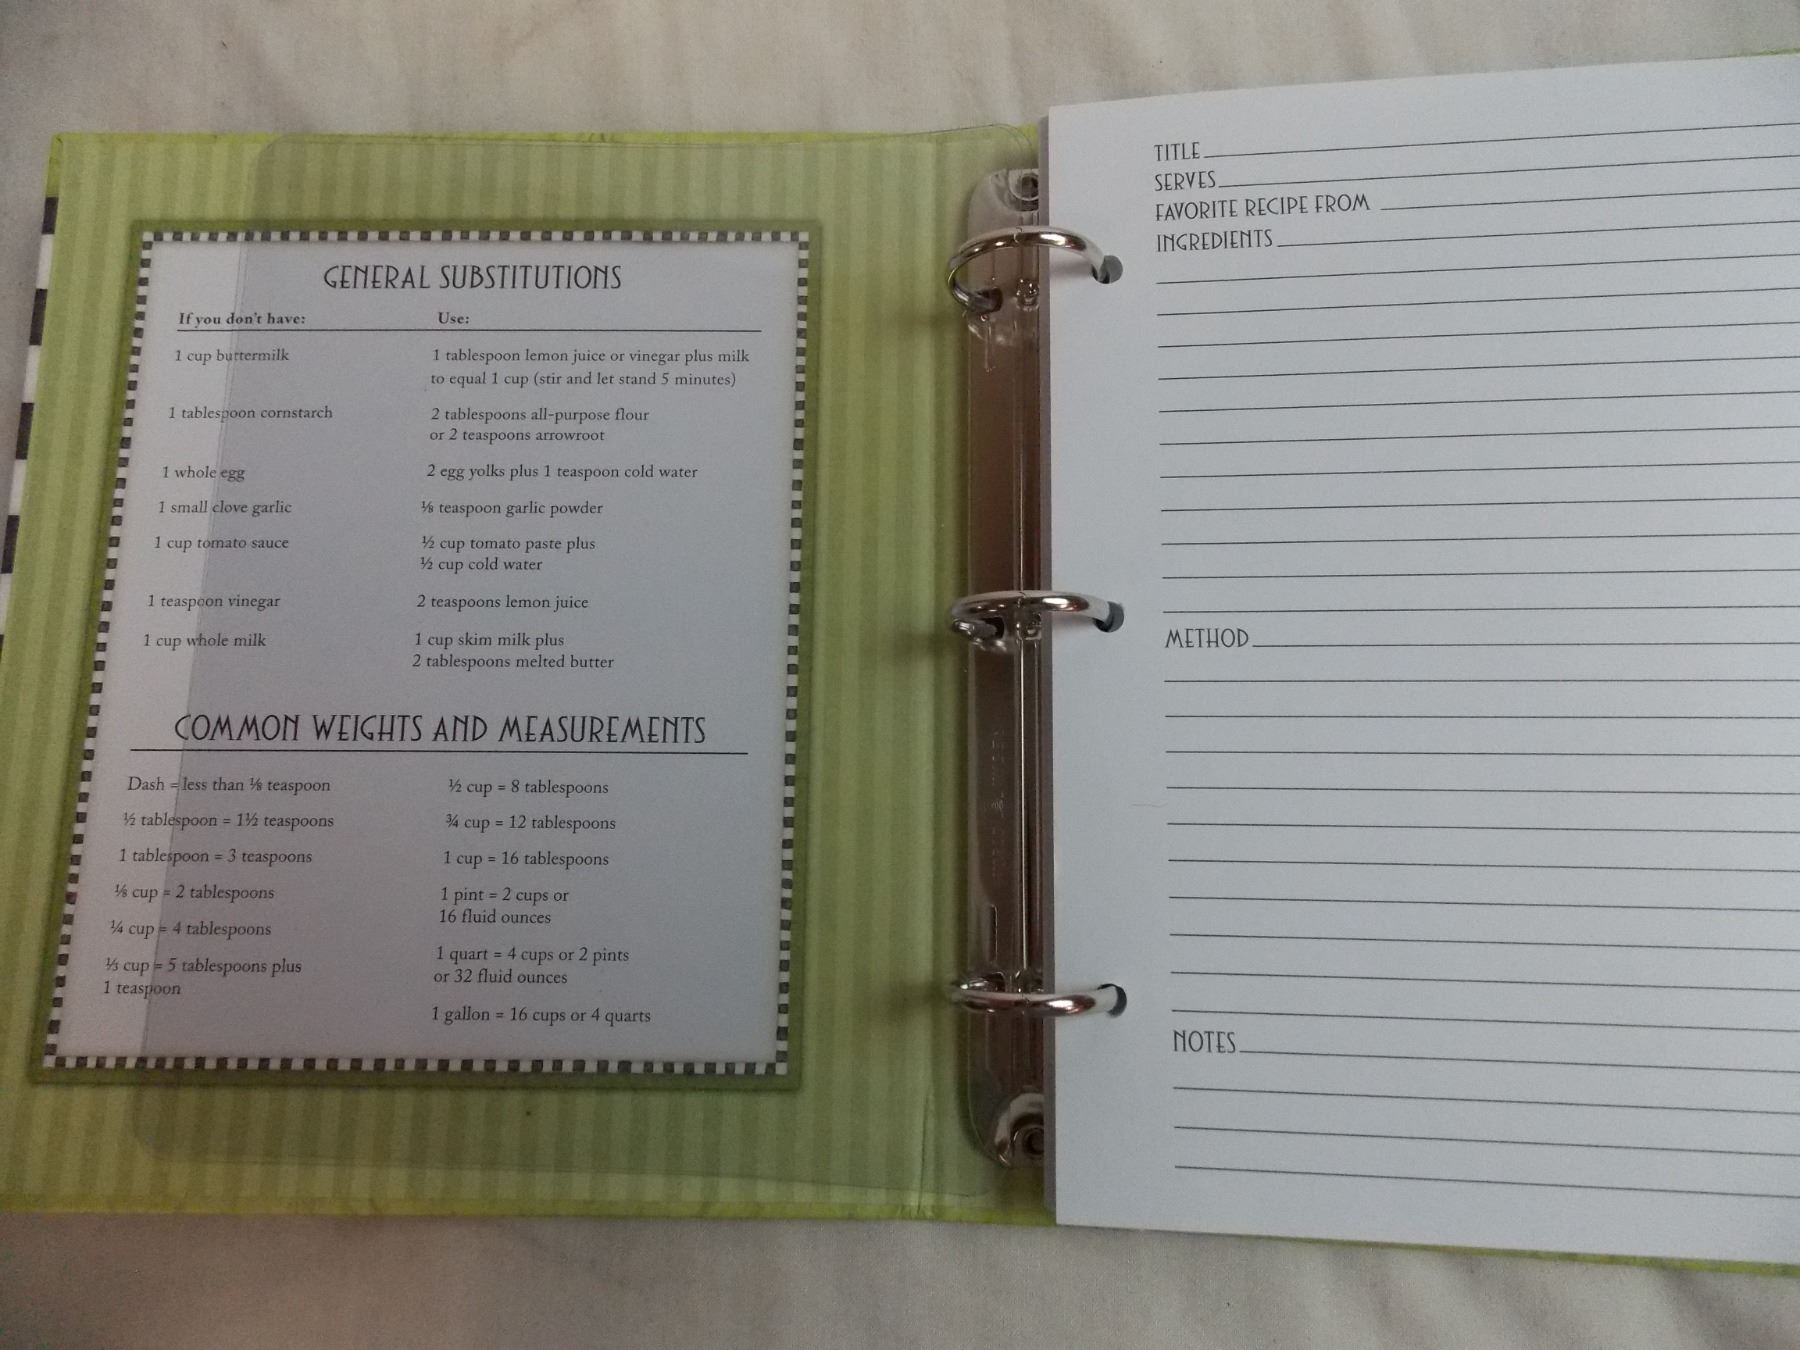 GENERAL SUBSTITUTIONS
If you don't have: Use:
1 cup buttermilk 1 tablespoon lemon juice or vinegar plus milk
to equal 1 cup (stir and let stand 5 minutes)
1 tablespoon cornstarch 2 tablespoons all-purpose flour
or 2 teaspoons arrowroot
1 whole egg 2 egg yolks plus 1 teaspoon cold water
1 small clove garlic ⅛ teaspoon garlic powder
1 cup tomato sauce ½ cup tomato paste plus
½ cup cold water
1 teaspoon vinegar 2 teaspoons lemon juice
1 cup whole milk 1 cup skim milk plus
2 tablespoons melted butter
COMMON WEIGHTS AND MEASUREMENTS
Dash = less than ⅛ teaspoon
½ tablespoon = 1½ teaspoons
1 tablespoon = 3 teaspoons
⅛ cup = 2 tablespoons
¼ cup = 4 tablespoons
⅓ cup = 5 tablespoons plus
1 teaspoon
½ cup = 8 tablespoons
¾ cup = 12 tablespoons
1 cup = 16 tablespoons
1 pint = 2 cups or
16 fluid ounces
1 quart = 4 cups or 2 pints
or 32 fluid ounces
1 gallon = 16 cups or 4 quarts
TITLE
SERVES
FAVORITE RECIPE FROM
INGREDIENTS
METHOD
NOTES